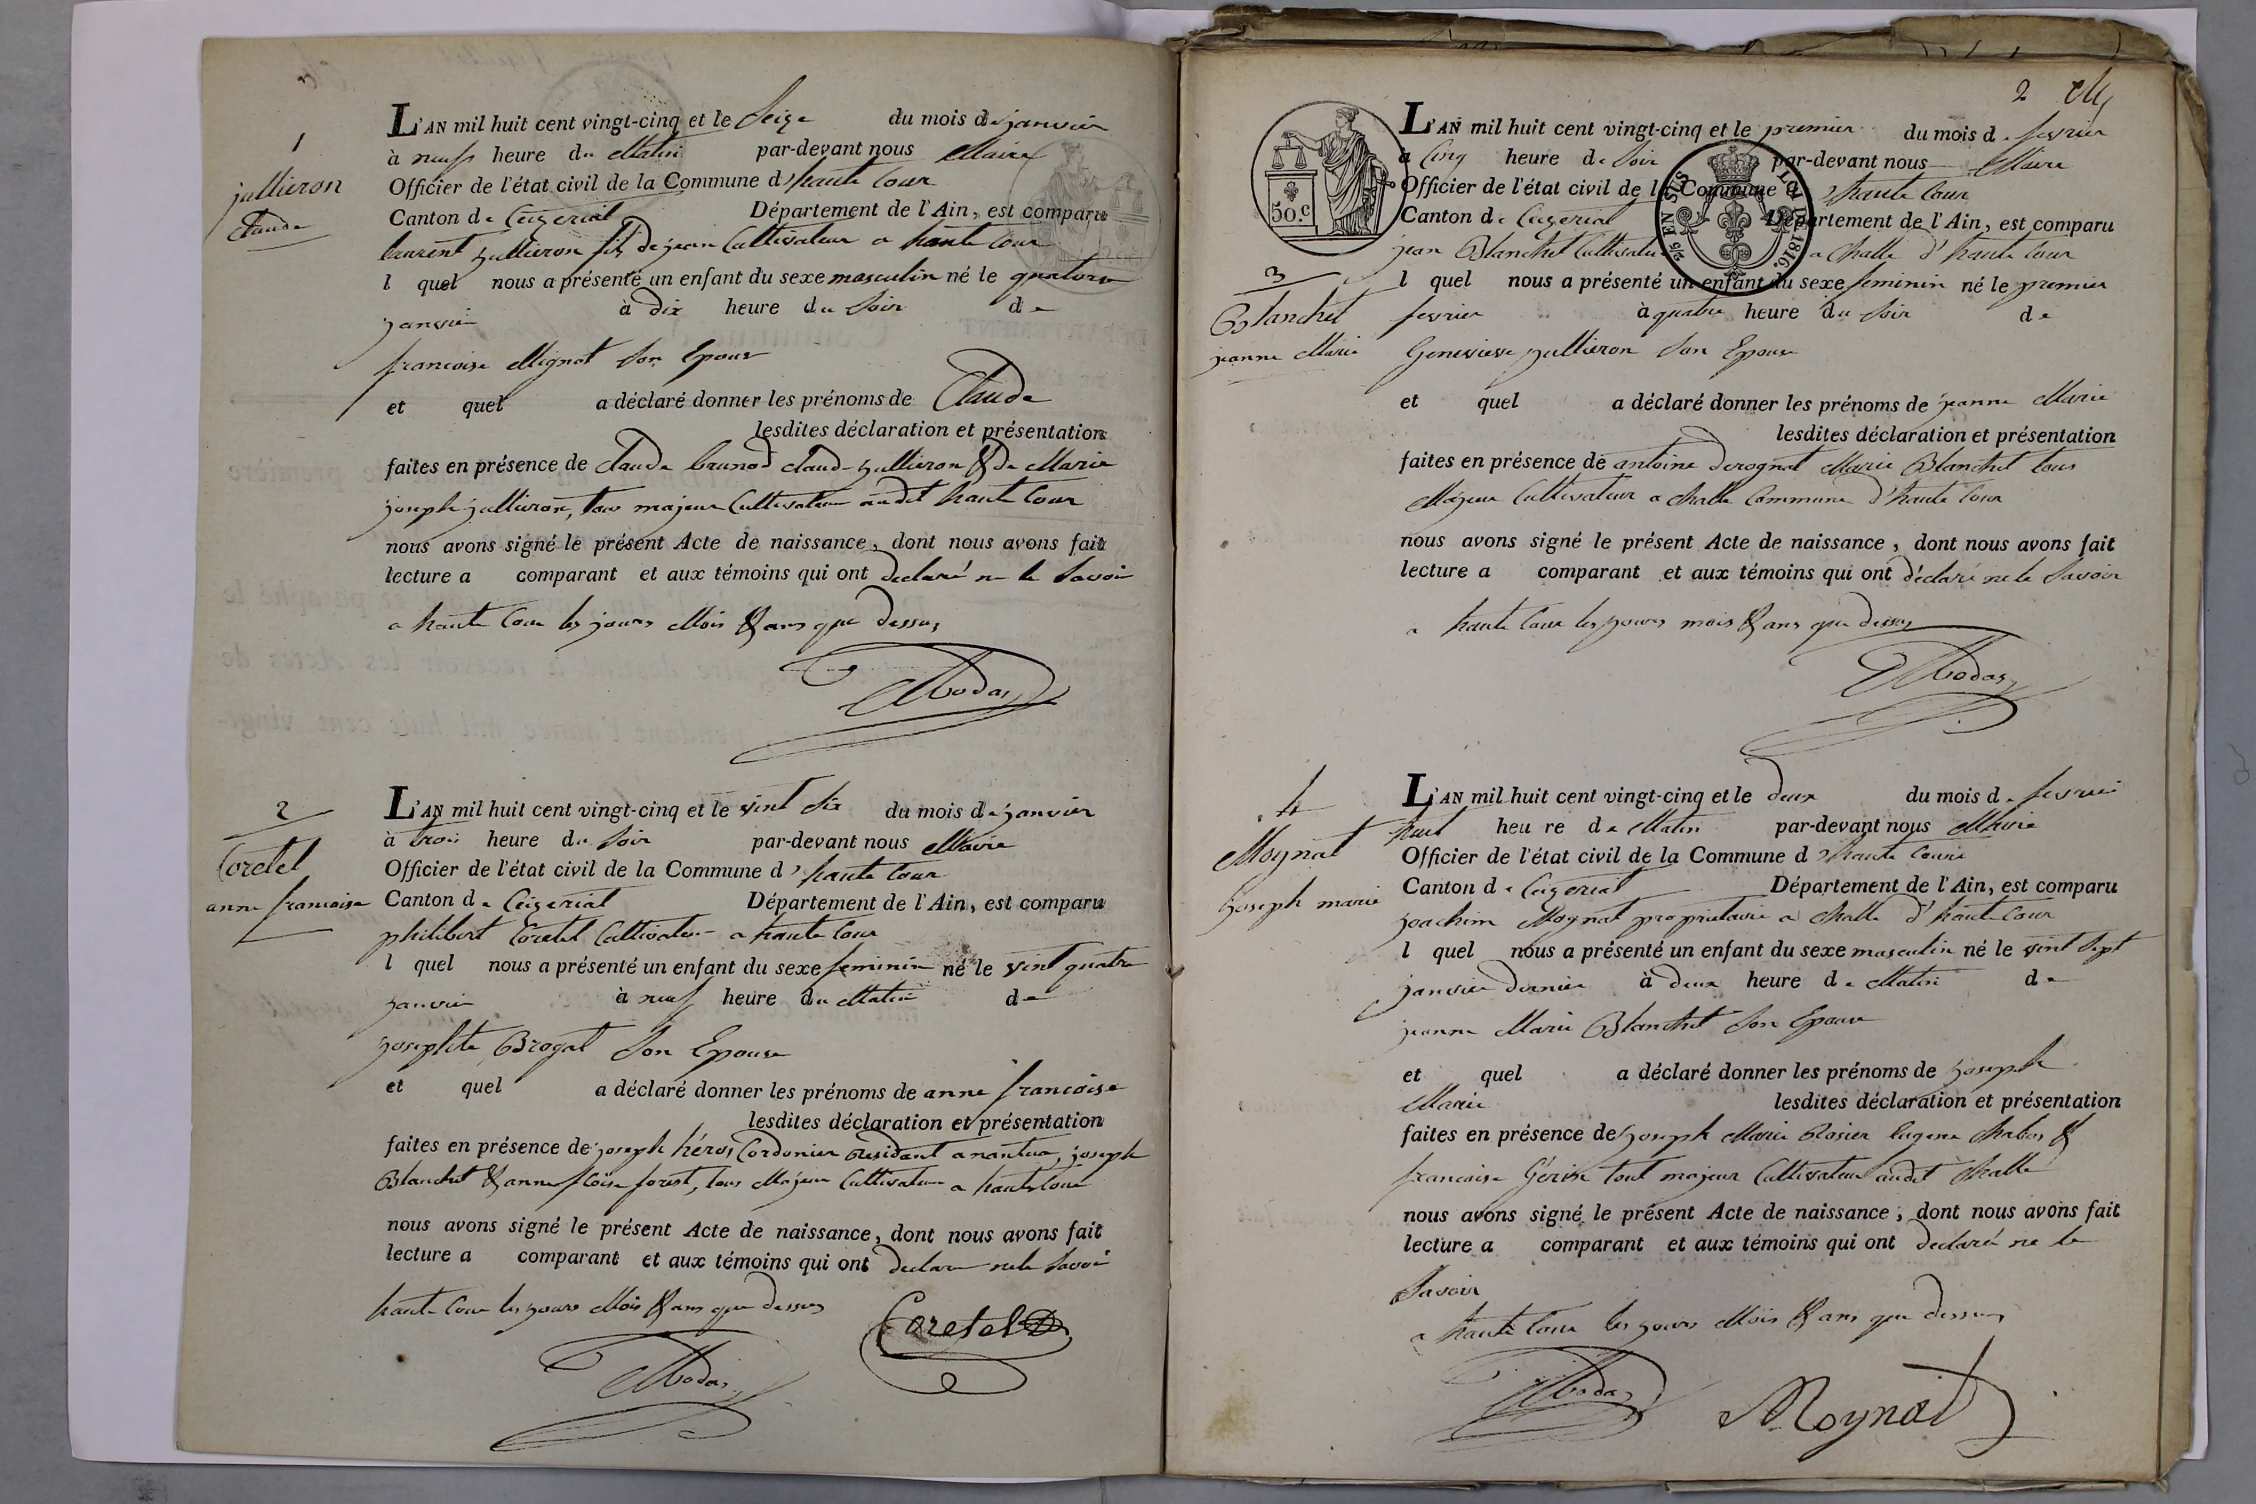 1
jullieron
Claude
L'AN mil huit cent vingt-cinq et le Seize du mois de janvier
à neuf heure du Matin par-devant nous Maire
Officier de l'état civil de la Commune d'haute Cour
Canton de Ceizeriat Département de l'Ain, est comparu
laurent jullieron fils de jean Cultivateur a haute Cour
l quel nous a présenté un enfant du sexe masculin né le quatorze
janvier à Dix heure du Soir de
francoise Mignot Son Epouse
et quel a déclaré donner les prénoms de Claude
lesdites déclaration et présentation
faites en présence de Claude brunod claude jullieron & de Marie
joseph jullieron, tous majeur Cultivateur audit haute Cour
nous avons signé le présent Acte de naissance, dont nous avons fait
lecture a comparant et aux témoins qui ont declaré ne le Savoir
a haute Cour les jours Mois & ans que dessus
2
Coretel
anne francoise
L'AN mil huit cent vingt-cinq et le vint Six du mois de janvier
à trois heure du Soir par-devant nous Maire
Officier de l'état civil de la Commune d'haute Cour
Canton de Ceizeriat Département de l'Ain, est comparu
philibert Coretel Cultivateur a haute Cour
l quel nous a présenté un enfant du sexe feminin né le vint quatre
janvier à neuf heure du Matin de
josephte Brogat Son Epouse
et quel a déclaré donner les prénoms de anne francoise
lesdites déclaration et présentation
faites en présence de joseph héros Cordonier residant a nantua, joseph
Blanchet & anne forest, tous Majeur Cultivateur a haute Cour
nous avons signé le présent Acte de naissance, dont nous avons fait
lecture a comparant et aux témoins qui ont declaré ne le Savoir
haute Cour les jours Mois & ans que dessus
Coretel
2
50.c
2/5 EN SUS LOI DE 1816.
3
Blanchet
jeanne Marie
L'AN mil huit cent vingt-cinq et le premier du mois de fevrier
à Cinq heure de Soir par-devant nous Maire
Officier de l'état civil de la Commune d'haute Cour
Canton de Ceizeriat Département de l'Ain, est comparu
jean Blanchet Cultivateur a Challe d'haute Cour
l quel nous a présenté un enfant du sexe feminin né le premier
fevrier à quatre heure du Soir de
Genevieve jullieron Son Epouse
et quel a déclaré donner les prénoms de jeanne Marie
lesdites déclaration et présentation
faites en présence de antoine derognat Marie Blanchet tous
Majeur Cultivateur a Challe Commune d'haute Cour
nous avons signé le présent Acte de naissance, dont nous avons fait
lecture a comparant et aux témoins qui ont déclaré ne le Savoir
a haute Cour les jours mois & ans que dessus
4
Moynat
joseph marie
L'AN mil huit cent vingt-cinq et le deux du mois de fevrier
huit heure de Matin par-devant nous Maire
Officier de l'état civil de la Commune d'haute Cour
Canton de Ceizeriat Département de l'Ain, est comparu
joachim Moynat proprietaire a Challe d'haute Cour
l quel nous a présenté un enfant du sexe masculin né le vint Sept
janvier dernier à deux heure de Matin de
jeanne Marie Blanchet Son Epouse
et quel a déclaré donner les prénoms de joseph
Marie lesdites déclaration et présentation
faites en présence de joseph Marie Rosier Eugene &
francoise tout majeur Cultivateur audit Challe
nous avons signé le présent Acte de naissance, dont nous avons fait
lecture a comparant et aux témoins qui ont declaré ne le
Savoir
a haute Cour les jours Mois & ans que dessus
Moynat